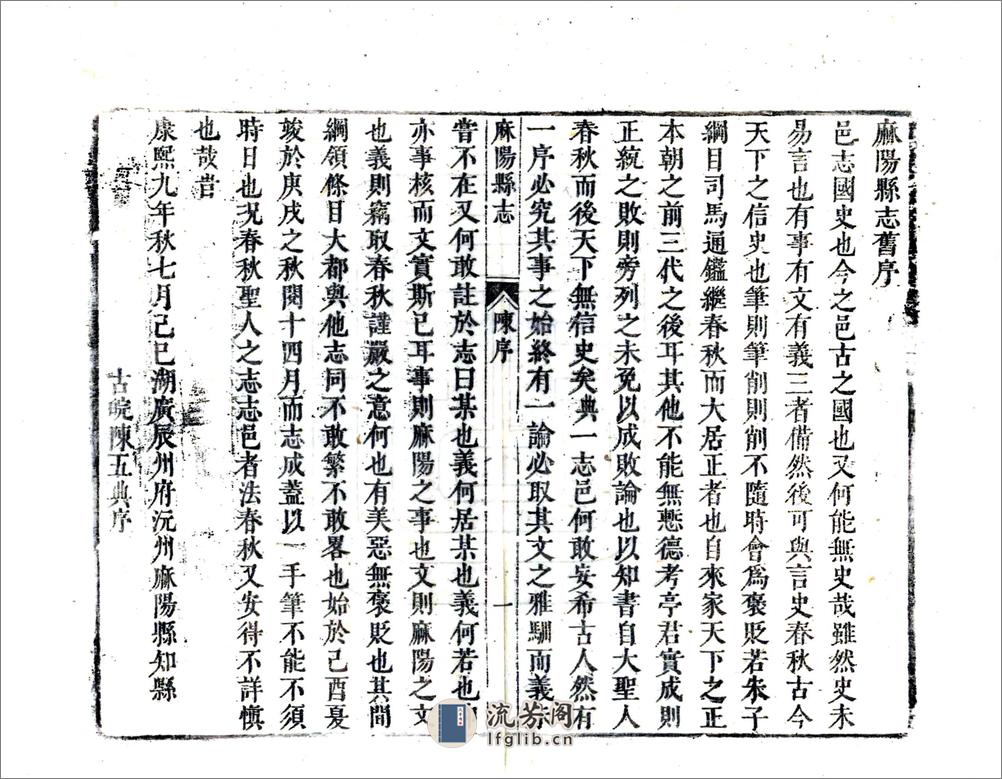 麻陽縣志舊序
邑志國史也今之邑古之國也又何能無史哉雖然史未
易言也有事有文有義三者備然後可與言史春秋古今
天下之信史也筆則筆削則削不隨時會爲褒貶若朱子
綱目司馬通鑑繼春秋而大居正者也自來家天下之正
本朝之前三代之後耳其他不能無慙德考亭君實成則
正統之敗則旁列之未免以成敗論也以知書自大聖人
春秋而後天下無信史矣典一志邑何敢妄希古人然有
一序必究其事之始終有一論必取其文之雅馴而義
麻陽縣志 陳序 一
嘗不在又何敢註於志曰某也義何居某也義何若也
亦事核而文實斯已耳事則麻陽之事也文則麻陽之文
也義則竊取春秋謹嚴之意何也有美惡無褒貶也其間
綱領條目大都與他志同不敢繁不敢畧也始於己酉夏
竣於庚戌之秋閱十四月而志成蓋以一手筆不能不須
時日也况春秋聖人之志志邑者法春秋又安得不詳愼
也哉旹
康熙九年秋七月己巳湖廣辰州府沅州麻陽縣知縣
古皖陳五典序
流芳阁
lfglib.cn